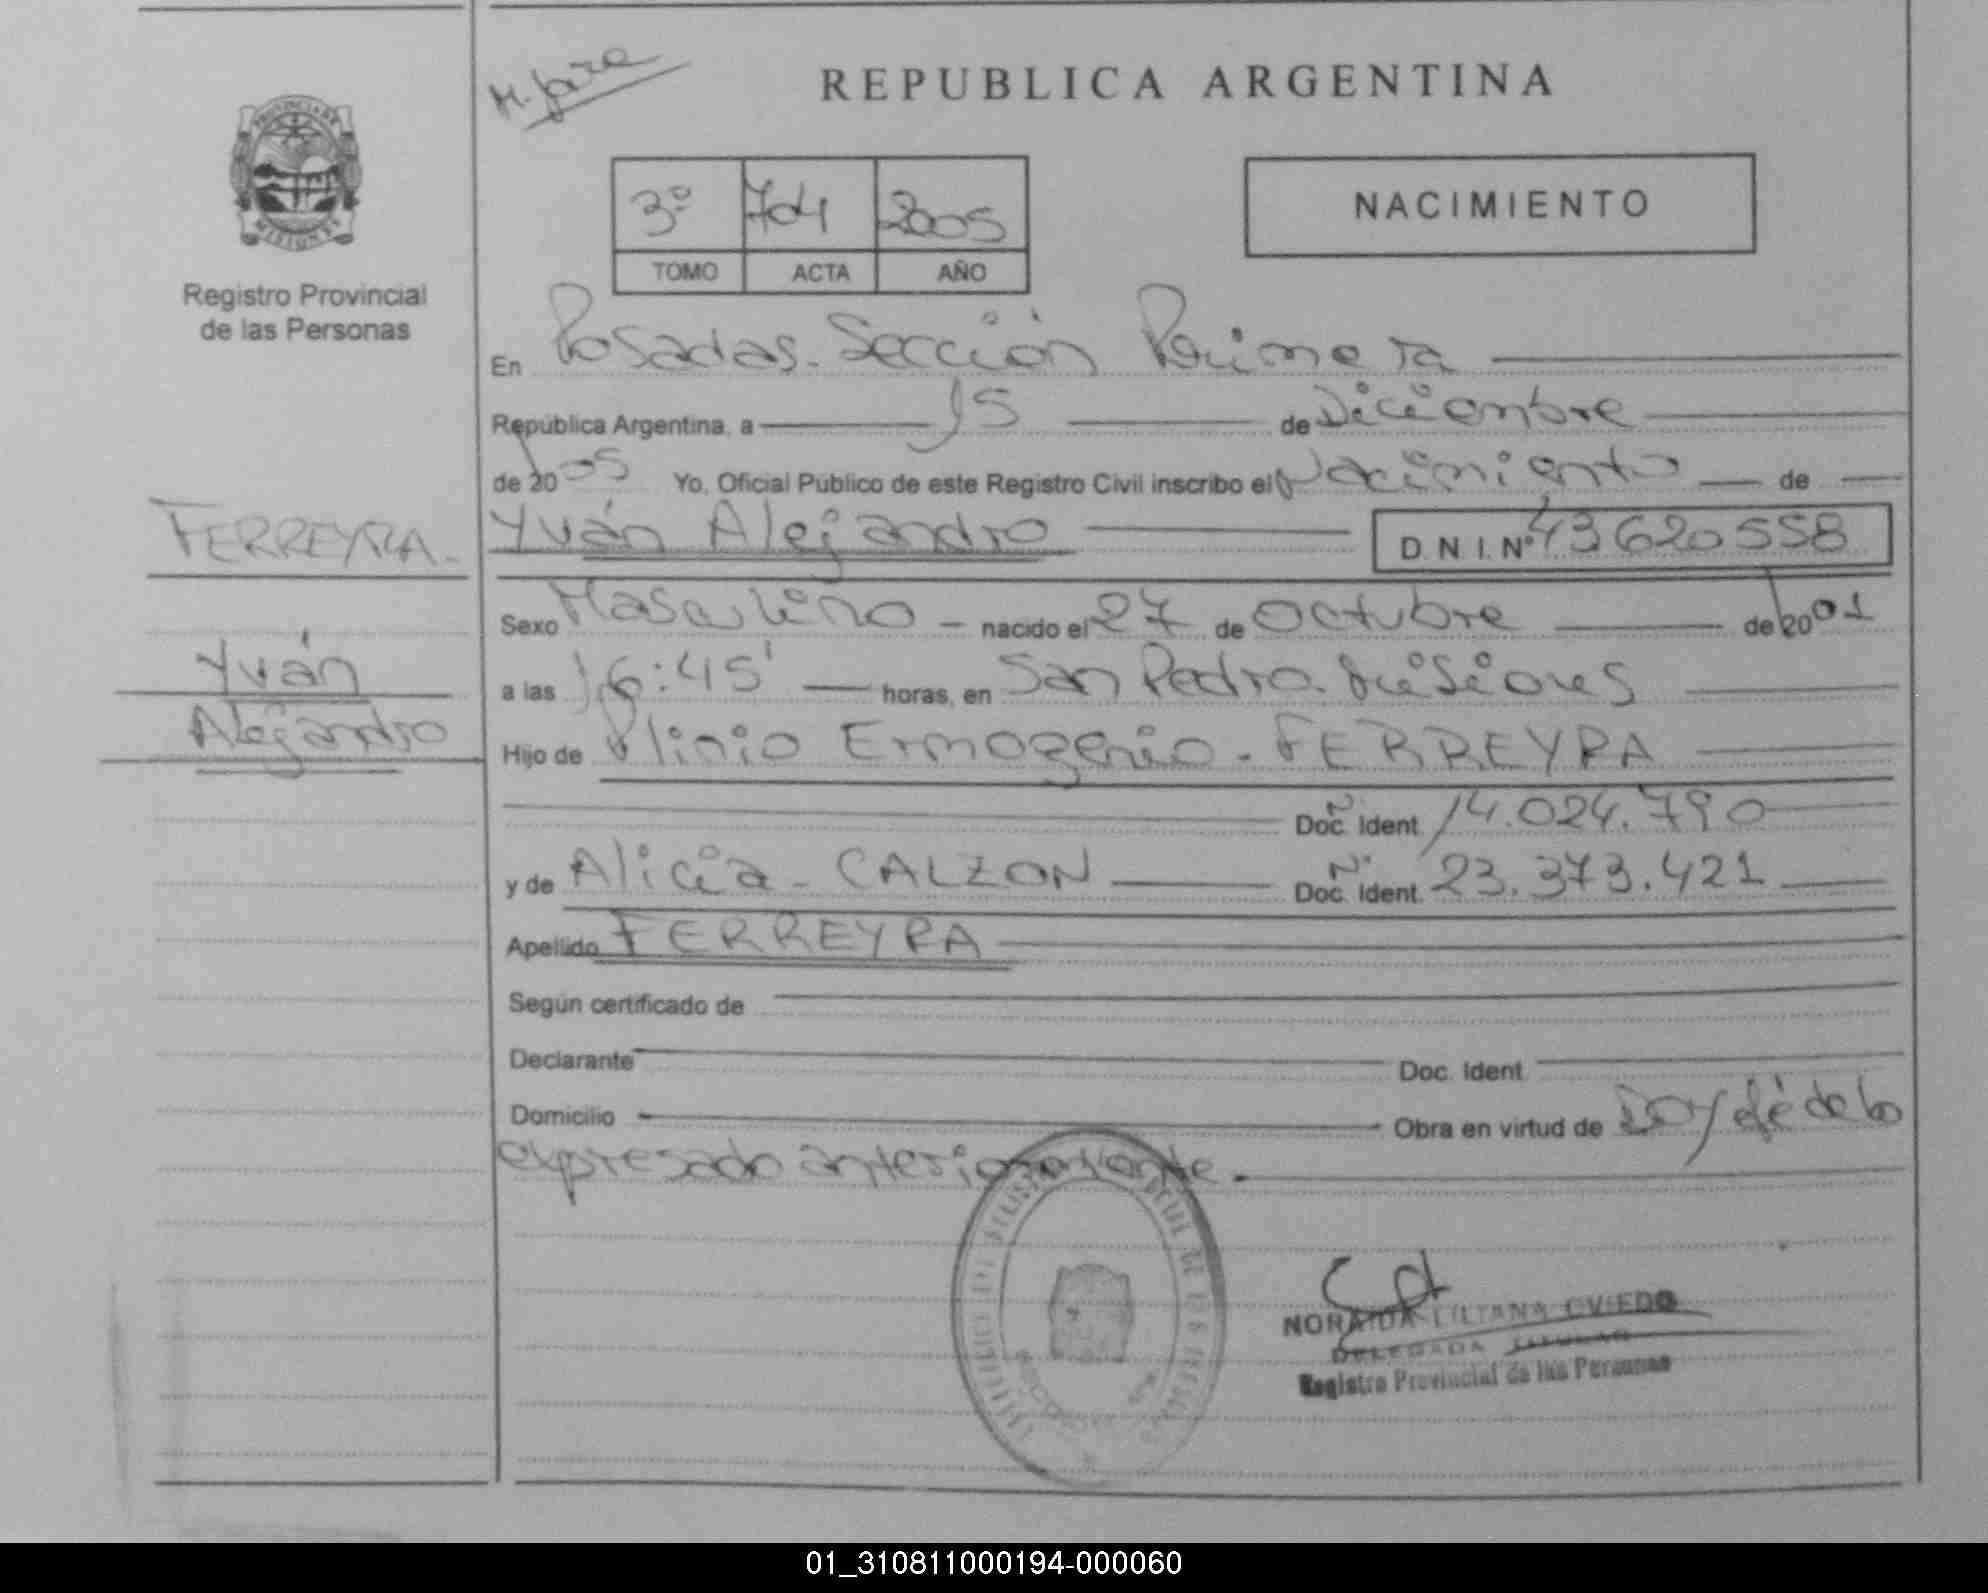 REPUBLICA ARGENTINA
PROVINCIA DE MISIONES
Registro Provincial
de las Personas
3º 704 2005
TOMO ACTA AÑO
NACIMIENTO
En Posadas. Sección Primera
República Argentina, a 15 de Diciembre
de 2005 Yo, Oficial Público de este Registro Civil inscribo el Nacimiento de
FERREYRA.
Yván Alejandro D.N.I. Nº 43620558
Sexo Masculino nacido el 27 de Octubre de 2001
Yván
a las 16:45' horas, en San Pedro. Misiones
Alejandro
Hijo de Plinio Ermogenio - FERREYRA
Doc. Ident Nº 14.024.790
y de Alicia - CALZON Doc. Ident. Nº 23.373.421
Apellido FERREYRA
Según certificado de
Declarante Doc. Ident
Domicilio Obra en virtud de Doy fé de lo
expresado anteriormente.
NORAIDA LILIANA OVIEDO
DELEGADA TITULAR
Registro Provincial de las Personas
01_310811000194-000060